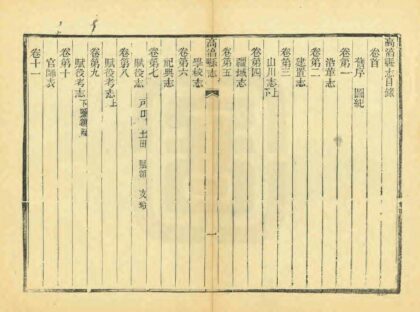 高淳縣志目錄
卷首
舊序 圖紀
卷第一
沿革志
卷第二
建置志
卷第三
山川志上下
卷第四
疆域志
卷第五
高淳縣志
一
學校志
卷第六
祀典志
卷第七
賦役志 戶口 土田 賦額 支給
卷第八
賦役考志上
卷第九
賦役考志下
卷第十
官師表
卷十一